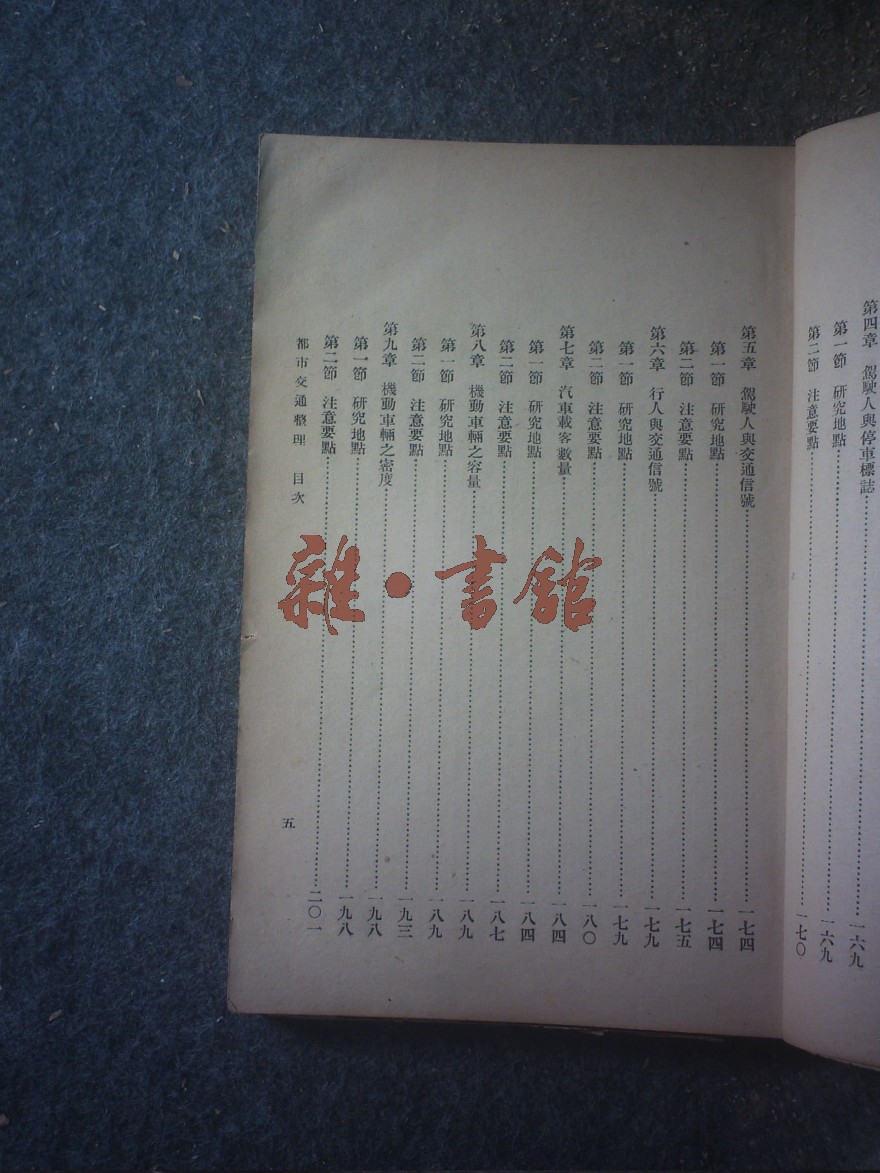 第四章　駕駛人與停車標誌…………一六九
第一節　研究地點…………一六九
第二節　注意要點…………一七〇
第五章　駕駛人與交通信號…………一七四
第一節　研究地點…………一七四
第二節　注意要點…………一七五
第六章　行人與交通信號…………一七九
第一節　研究地點…………一七九
第二節　注意要點…………一八〇
第七章　汽車載客數量…………一八四
第一節　研究地點…………一八四
第二節　注意要點…………一八七
第八章　機動車輛之容量…………一八九
第一節　研究地點…………一八九
第二節　注意要點…………一九三
第九章　機動車輛之密度…………一九八
第一節　研究地點…………一九八
第二節　注意要點…………二〇一
都市交通整理　目次
五
雜·書館